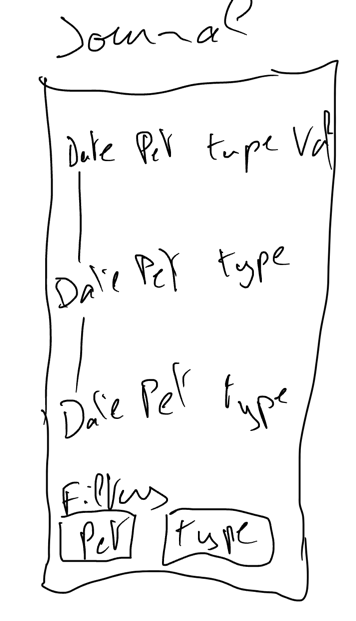 Journal
Date Pet type Val
Date Pet type
Date Pet type
Filters
Pet type